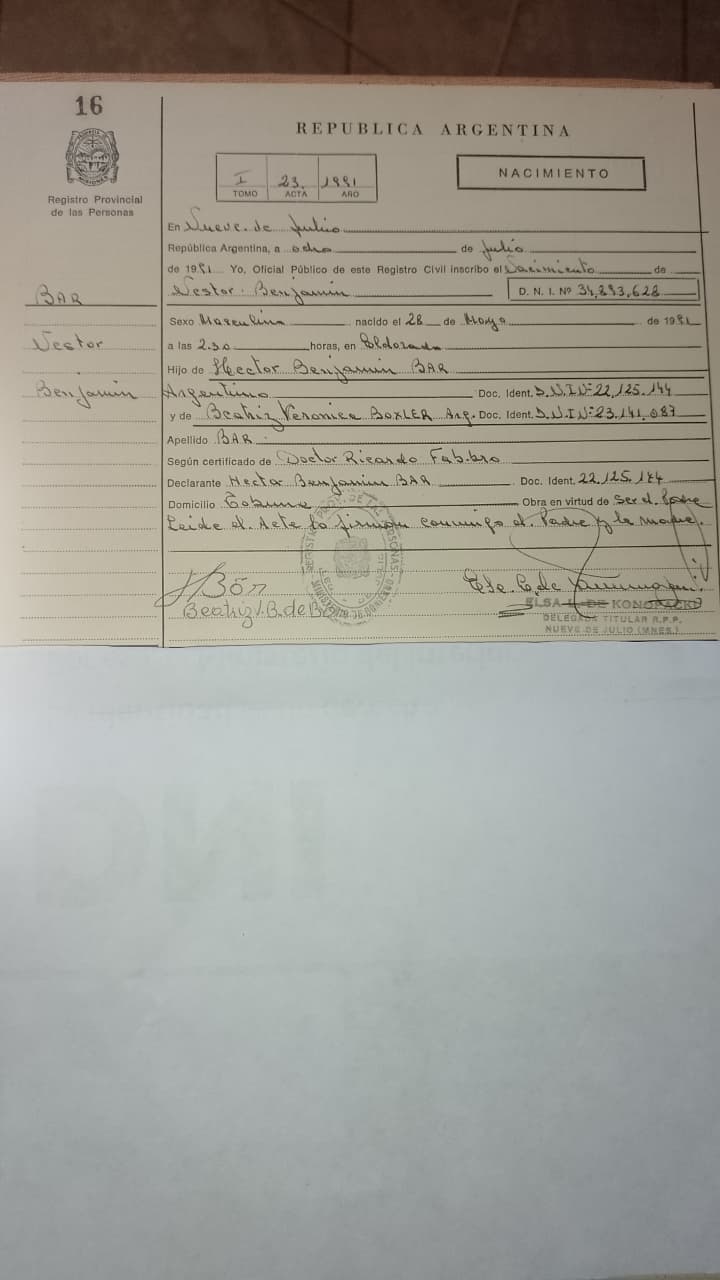 16
REPUBLICA ARGENTINA
I 23 1991
TOMO ACTA AÑO
NACIMIENTO
Registro Provincial
de las Personas
En Nueve de Julio
República Argentina, a ocho de Julio
de 1991 Yo, Oficial Público de este Registro Civil inscribo el Nacimiento de
BAR
Nestor Benjamin D. N. I. Nº 34,893,628
Sexo Masculino nacido el 28 de Mayo de 1991
Nestor
a las 2.30 horas, en Eldorado
Hijo de Hector Benjamin BAR
Benjamin
Argentino Doc. Ident. D.N.I Nº 22,125,144
y de Beatriz Veronica BOXLER Arg. Doc. Ident. D.N.I Nº 23,141,087
Apellido BAR
Según certificado de Doctor Ricardo Fabbro
Declarante Hector Benjamin BAR Doc. Ident. 22.125,144
Domicilio Obra en virtud de ser el Padre
Leida el Acta la firman conmigo el Padre y la madre.
Beatriz V. B. de
ELSA L. DE KONOPACKI
DELEGADA TITULAR R.P.P.
NUEVE DE JULIO (MNES.)